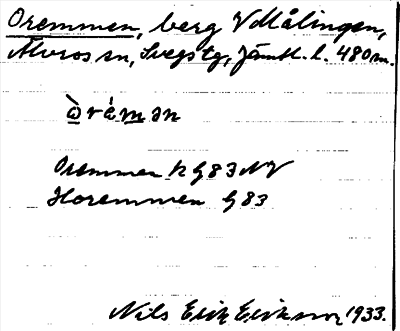 Oremmen, berg V Målingen,
Älvros sn, Svegs tg, Jämtl. l. 480 m.
òrémən
Oremmen k G83 NV
Horemmen G 83
Nils Erik Eriksson 1933.